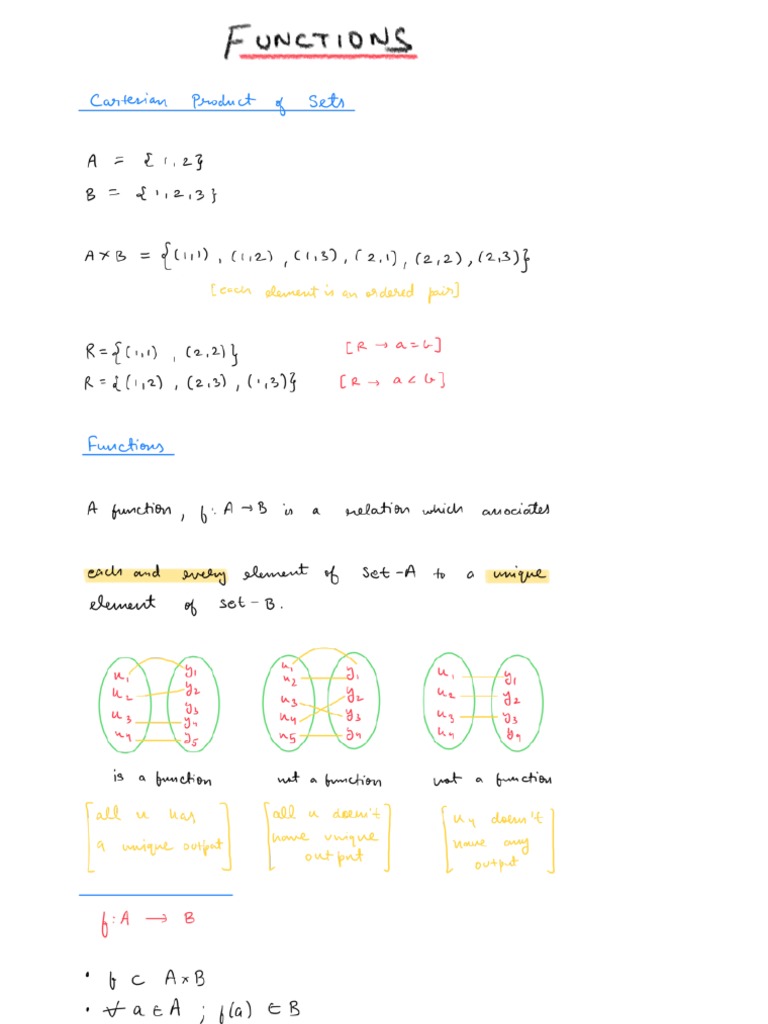 FUNCTIONS
Cartesian Product of Sets
A = {1,2}
B = {1,2,3}
A×B = {(1,1), (1,2), (1,3), (2,1), (2,2), (2,3)}
[each element is an ordered pair]
R = {(1,1), (2,2)} [R → a=b]
R = {(1,2), (2,3), (1,3)} [R → a<b]
Functions
A function, f: A→B is a relation which associates
each and every element of set-A to a unique
element of set-B.
x₁ y₁ x₁ y₁ x₁ y₁
x₂ y₂ x₂ y₂ x₂ y₂
x₃ y₃ x₃ y₃ x₃ y₃
x₄ y₄ x₄ y₄ x₄ y₄
y₅ x₅
is a function not a function not a function
[all x has [all x doesn't [x₄ doesn't
a unique output] have unique have any
output] output]
f: A → B
• f ⊂ A×B
• ∀ a ∈ A ; f(a) ∈ B